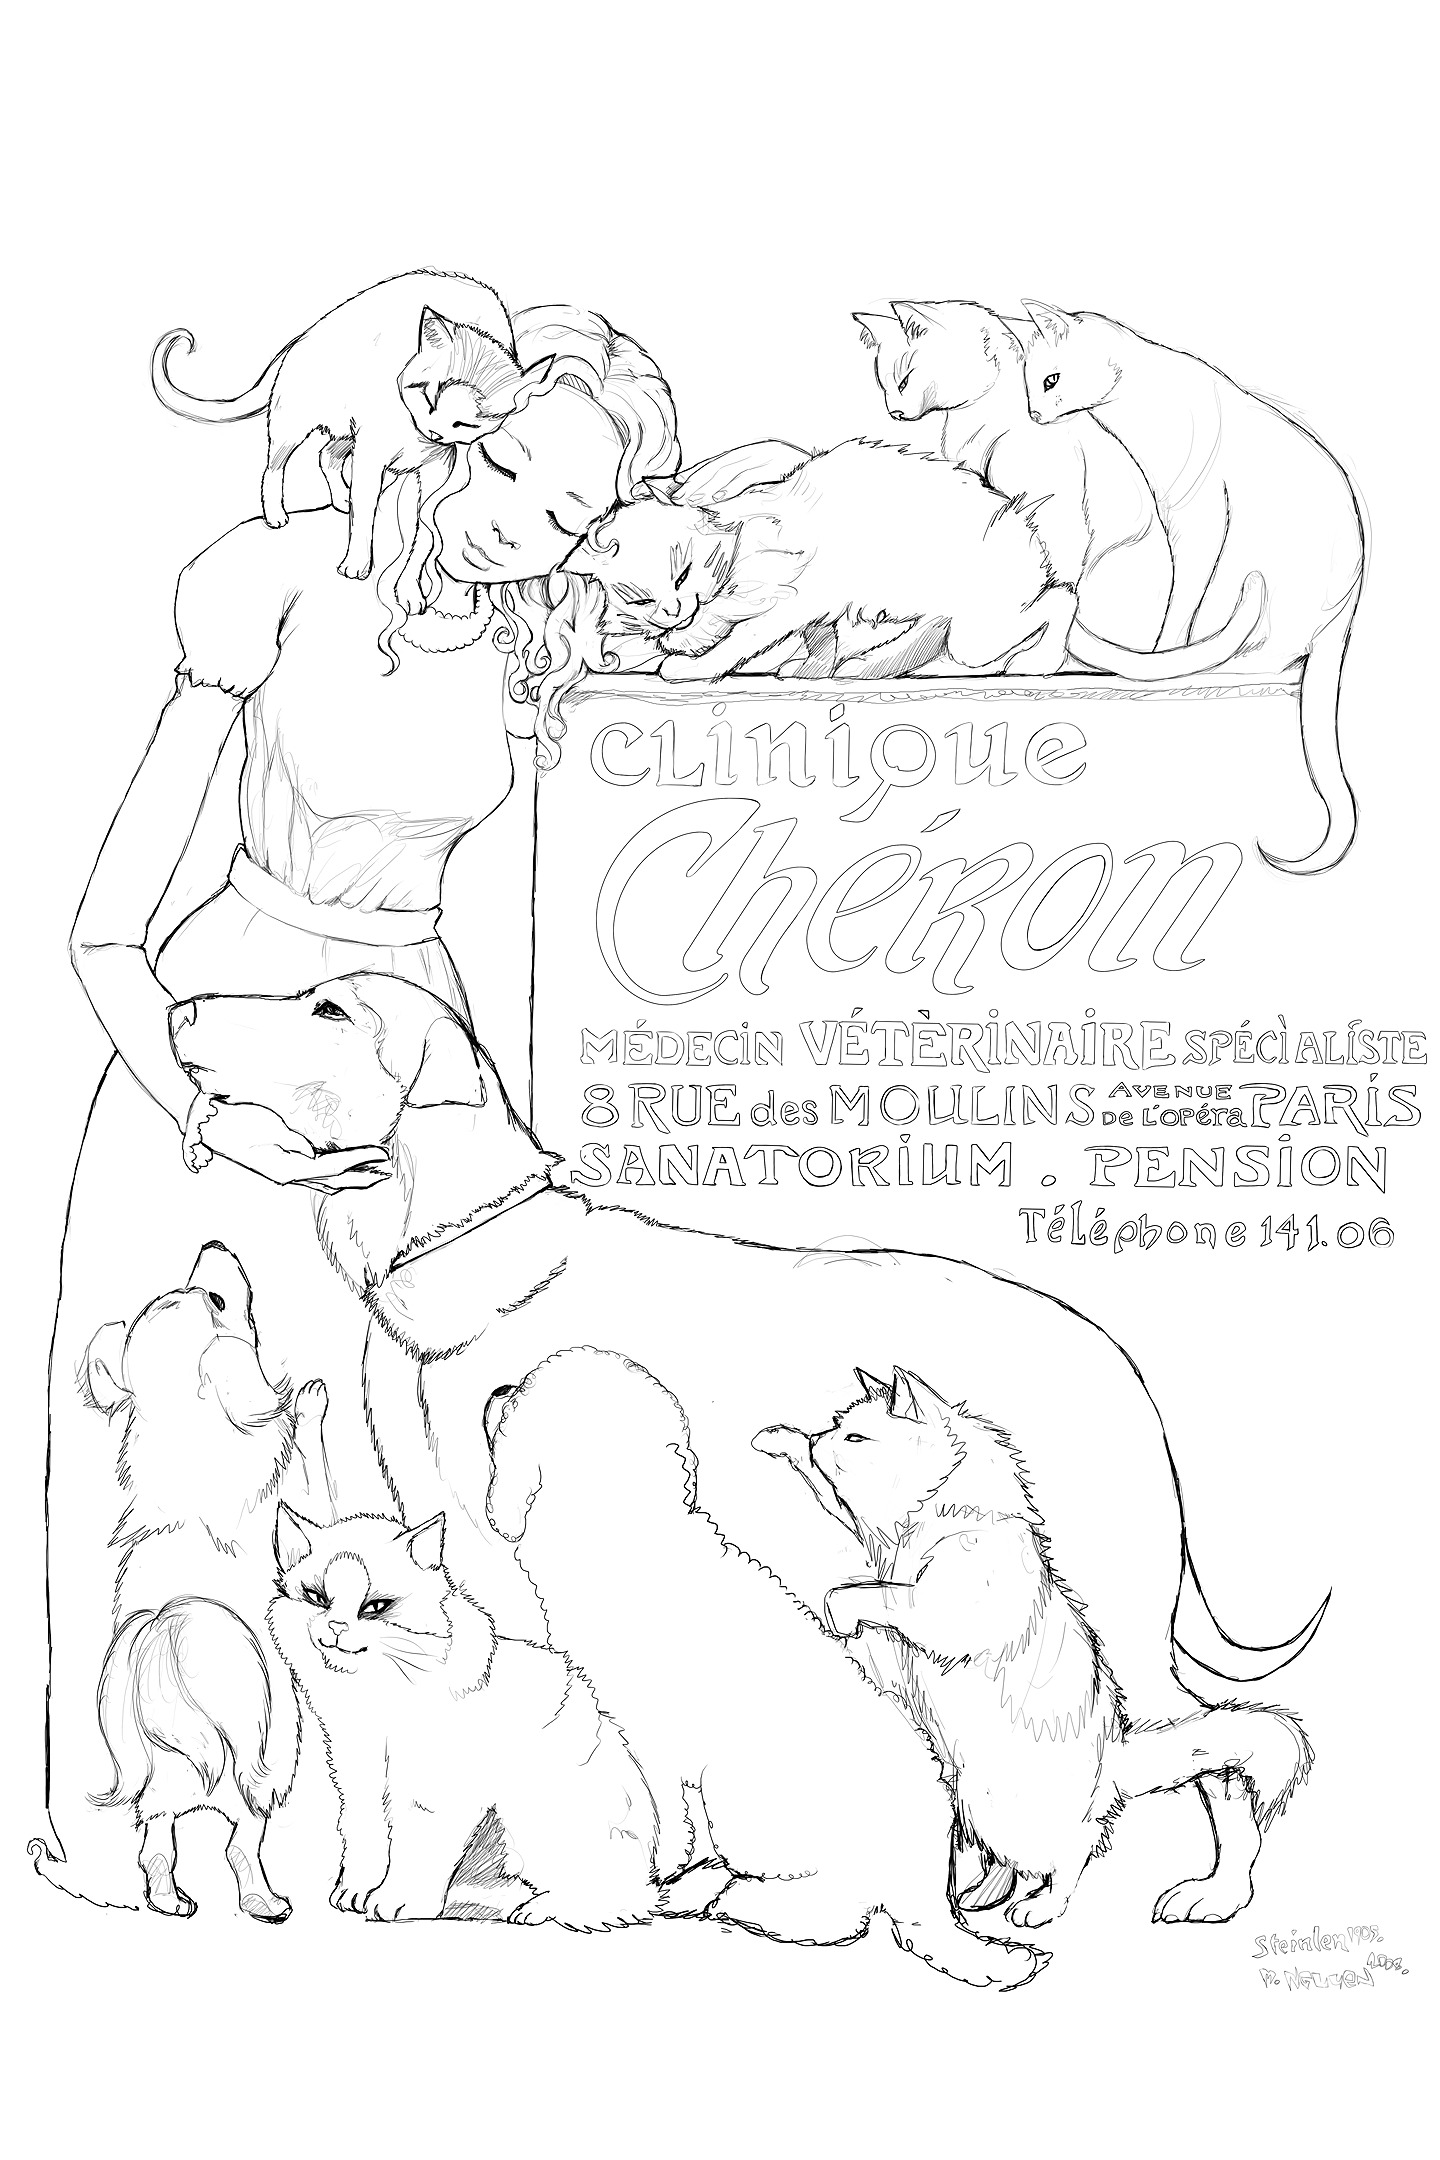 CLiniQue
Chéron
MÉDECiN VÉTÈRiNAiRE SPÉCÌALÍSTE
8 RUE des MOULINS AVENUE DE L'OPÉRA PARÍS
SANATORIUM . PENSION
Téléphone 141.06
Steinlen 1905.
M. NGUYEN 2008.